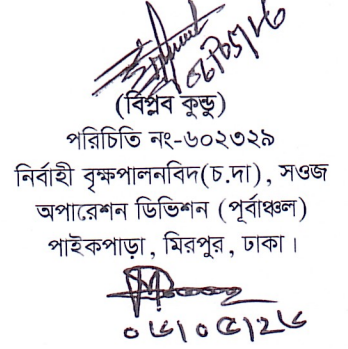 ০৬/০৫/২৬
(বিপ্লব কুন্ডু)
পরিচিতি নং-৬০২৩২৯
নির্বাহী বৃক্ষপালনবিদ(চ.দা), সওজ
অপারেশন ডিভিশন (পূর্বাঞ্চল)
পাইকপাড়া, মিরপুর, ঢাকা।
০৬/০৫/২৬